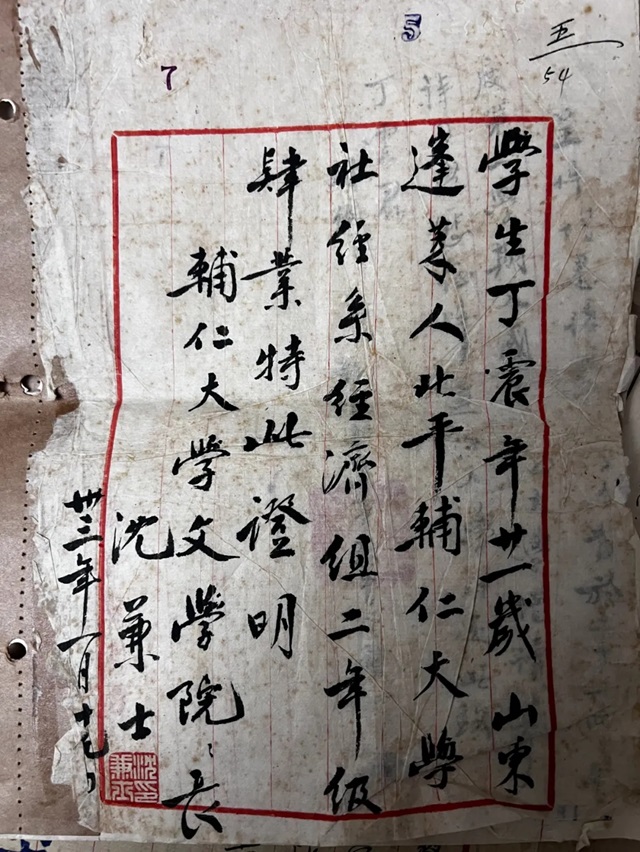 五
54
5
7
學生丁震年廿一歲山東
蓬萊人北平輔仁大學
社經系經濟組二年級
肄業特此證明
輔仁大學文學院院長
沈兼士
沈兼士印
卅三年一月十七日